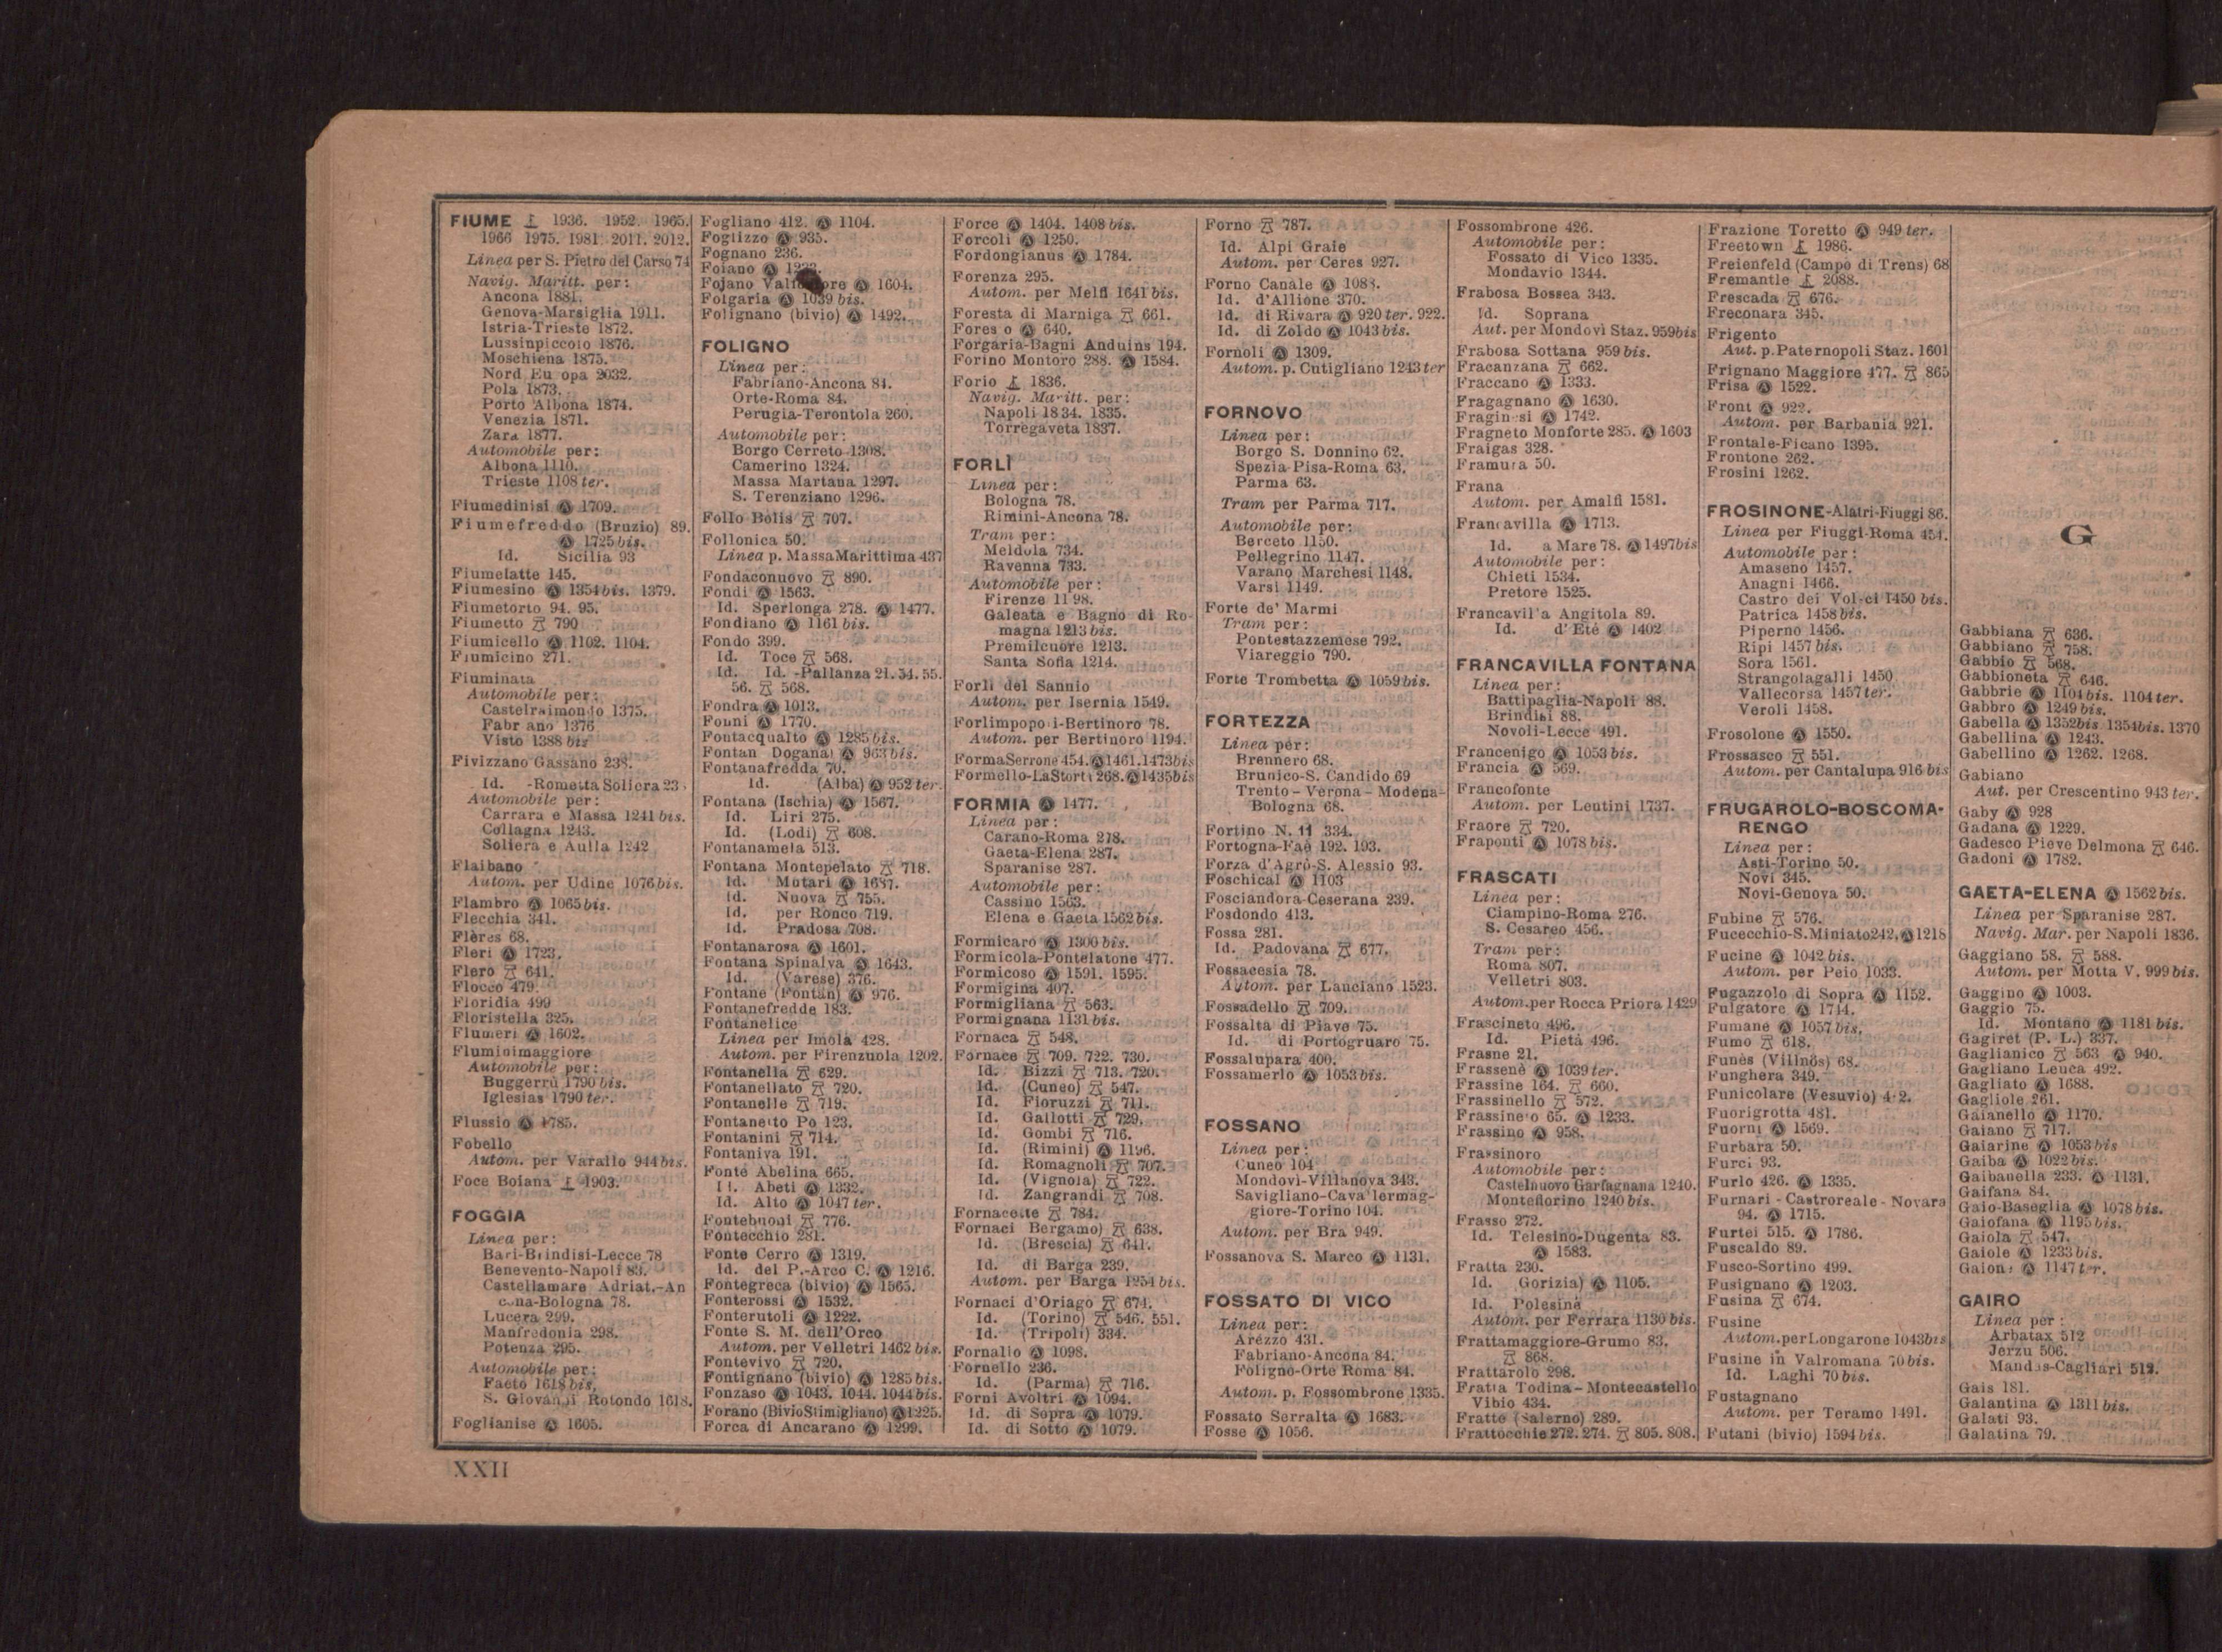 FIUME 1936. 1952. 1965.
1966 1975. 1981. 2011. 2012.
Linea per S. Pietro del Carso 74
Navig. Maritt. per:
Ancona 1881.
Genova-Marsiglia 1911.
Istria-Trieste 1872.
Lussinpiccolo 1876.
Moschiena 1875.
Nord Eu opa 2032.
Pola 1873.
Porto Albona 1874.
Venezia 1871.
Zara 1877.
Automobile per:
Albona 1110.
Trieste 1108 ter.
Fiumedinisi Ⓐ 1709.
Fiumefreddo (Bruzio) 89.
Ⓐ 1725 bis.
Id. Sicilia 93
Fiumelatte 145.
Fiumesino Ⓐ 1354 bis. 1379.
Fiumetorto 94. 95.
Fiumetto 790
Fiumicello Ⓐ 1102. 1104.
Fiumicino 271.
Fiuminata
Automobile per:
Castelraimondo 1375.
Fabr ano 1376
Visto 1388 bis
Fivizzano Gassano 238.
Id. -Rometta Soliera 23
Automobile per:
Carrara e Massa 1241 bis.
Collagna 1243.
Soliera e Aulla 1242
Flaibano
Autom. per Udine 1076 bis.
Flambro Ⓐ 1065 bis.
Flecchia 341.
Flères 68.
Fleri Ⓐ 1723.
Flero 641.
Flocco 479.
Floridia 499
Floristella 325.
Flumeri Ⓐ 1602.
Fluminimaggiore
Automobile per:
Buggerru 1790 bis.
Iglesias 1790 ter.
Flussio Ⓐ 1785.
Fobello
Autom. per Varallo 944 bis.
Foce Boiana 1903.
FOGGIA
Linea per:
Bari-Brindisi-Lecce 78
Benevento-Napoli 83.
Castellamare Adriat.-An
cona-Bologna 78.
Lucera 299.
Manfredonia 298.
Potenza 295.
Automobile per:
Faeto 1618 bis.
S. Giovanni Rotondo 1618.
Foglianise Ⓐ 1605.
Fogliano 412. Ⓐ 1104.
Foglizzo Ⓐ 935.
Fognano 236.
Foiano Ⓐ
Fojano Ⓐ 1604.
Folgaria Ⓐ 1039 bis.
Folignano (bivio) Ⓐ 1492.
FOLIGNO
Linea per:
Fabriano-Ancona 84.
Orte-Roma 84.
Perugia-Terontola 260.
Automobile per:
Borgo Cerreto 1308.
Camerino 1324.
Massa Martana 1297.
S. Terenziano 1296.
Follo Bolis 707.
Follonica 50.
Linea p. Massa Marittima 437
Fondaconuovo 890.
Fondi Ⓐ 1563.
Id. Sperlonga 278. Ⓐ 1477.
Fondiano Ⓐ 1161 bis.
Fondo 399.
Id. Toce 568.
Id. Id. -Pallanza 21. 54. 55.
56. 568.
Fondra Ⓐ 1013.
Fonni Ⓐ 1770.
Fontacqualto Ⓐ 1285 bis.
Fontan Dogana Ⓐ 963 bis.
Fontanafredda 70.
Id. (Alba) Ⓐ 952 ter.
Fontana (Ischia) Ⓐ 1567.
Id. Liri 275.
Id. (Lodi) 608.
Fontanamela 513.
Fontana Montepelato 718.
Id. Motari Ⓐ 1687.
Id. Nuova 755.
Id. per Ronco 719.
Id. Pradosa 708.
Fontanarosa Ⓐ 1601.
Fontana Spinalva Ⓐ 1643.
Id. (Varese) 376.
Fontane (Fontan) Ⓐ 976.
Fontanefredde 183.
Fontanelice
Linea per Imola 428.
Autom. per Firenzuola 1202.
Fontanella 629.
Fontanellato 720.
Fontanelle 719.
Fontanetto Po 123.
Fontanini 714.
Fontaniva 191.
Fonte Abelina 665.
Id. Abeti Ⓐ 1332.
Id. Alto Ⓐ 1047 ter.
Fontebuoni 776.
Fontecchio 281.
Fonte Cerro Ⓐ 1319.
Id. del P.-Arco C. Ⓐ 1216.
Fontegreca (bivio) Ⓐ 1565.
Fonterossi Ⓐ 1532.
Fonterutoli Ⓐ 1222.
Fonte S. M. dell'Orco
Autom. per Velletri 1462 bis.
Fontevivo 720.
Fontignano (bivio) Ⓐ 1285 bis.
Fonzaso Ⓐ 1043. 1044. 1044 bis.
Forano (Bivio Stimigliano) Ⓐ 1225.
Forca di Ancarano Ⓐ 1299.
Force Ⓐ 1404. 1408 bis.
Forcoli Ⓐ 1250.
Fordongianus Ⓐ 1784.
Forenza 295.
Autom. per Melfi 1641 bis.
Foresta di Marniga 661.
Fores o Ⓐ 640.
Forgaria-Bagni Anduins 194.
Forino Montoro 288. Ⓐ 1584.
Forio 1836.
Navig. Maritt. per:
Napoli 1834. 1835.
Torregaveta 1837.
FORLÌ
Linea per:
Bologna 78.
Rimini-Ancona 78.
Tram per:
Meldola 734.
Ravenna 733.
Automobile per:
Firenze 1198.
Galeata e Bagno di Ro-
magna 1213 bis.
Premilcuore 1213.
Santa Sofia 1214.
Forli del Sannio
Autom. per Isernia 1549.
Forlimpopo i-Bertinoro 78.
Autom. per Bertinoro 1194.
Forma Serrone 454. Ⓐ 1461. 1473 bis
Formello-La Storta 268. Ⓐ 1435 bis
FORMIA Ⓐ 1477.
Linea per:
Carano-Roma 278.
Gaeta-Elena 287.
Sparanise 287.
Automobile per:
Cassino 1563.
Elena e Gaeta 1562 bis.
Formicaro Ⓐ 1300 bis.
Formicola-Pontelatone 477.
Formicoso Ⓐ 1591. 1595.
Formigina 407.
Formigliana 563.
Formignana 1131 bis.
Fornaca 548.
Fornace 709. 722. 730.
Id. Bizzi 713. 720.
Id. (Cuneo) 547.
Id. Fioruzzi 711.
Id. Gallotti 729.
Id. Gombi 716.
Id. (Rimini) Ⓐ 1196.
Id. Romagnoli 707.
Id. (Vignola) 722.
Id. Zangrandi 708.
Fornacette 784.
Fornaci Bergamo) 638.
Id. (Brescia) 641.
Id. di Barga 239.
Autom. per Barga 1254 bis.
Fornaci d'Oriago 674.
Id. (Torino) 546. 551.
Id. (Tripoli) 334.
Fornalio Ⓐ 1098.
Fornello 236.
Id. (Parma) 716.
Forni Avoltri Ⓐ 1094.
Id. di Sopra Ⓐ 1079.
Id. di Sotto Ⓐ 1079.
Forno 787.
Id. Alpi Graie
Autom. per Ceres 927.
Forno Canale Ⓐ 1088.
Id. d'Allione 370.
Id. di Rivara Ⓐ 920 ter. 922.
Id. di Zoldo Ⓐ 1043 bis.
Fornoli Ⓐ 1309.
Autom. p. Cutigliano 1243 ter
FORNOVO
Linea per:
Borgo S. Donnino 62.
Spezia-Pisa-Roma 63.
Parma 63.
Tram per Parma 717.
Automobile per:
Berceto 1150.
Pellegrino 1147.
Varano Marchesi 1148.
Varsi 1149.
Forte de' Marmi
Tram per:
Pontestazzemese 792.
Viareggio 790.
Forte Trombetta Ⓐ 1059 bis.
FORTEZZA
Linea per:
Brennero 68.
Brunico-S. Candido 69
Trento-Verona-Modena-
Bologna 68.
Fortino N. 11 334.
Fortogna-Faè 192. 193.
Forza d'Agrò-S. Alessio 93.
Foschical Ⓐ 1103
Fosciandora-Ceserana 239.
Fosdondo 413.
Fossa 281.
Id. Padovana 677.
Fossacesia 78.
Autom. per Lanciano 1523.
Fossadello 709.
Fossalta di Piave 75.
Id. di Portogruaro 75.
Fossalupara 400.
Fossamerlo Ⓐ 1053 bis.
FOSSANO
Linea per:
Cuneo 104
Mondovi-Villanova 343.
Savigliano-Cava lermag-
giore-Torino 104.
Autom. per Bra 949.
Fossanova S. Marco Ⓐ 1131.
FOSSATO DI VICO
Linea per:
Arezzo 431.
Fabriano-Ancona 84.
Foligno-Orte Roma 84.
Autom. p. Fossombrone 1335.
Fossato Serralta Ⓐ 1683.
Fosse Ⓐ 1056.
Fossombrone 426.
Automobile per:
Fossato di Vico 1335.
Mondavio 1344.
Frabosa Bossea 343.
Id. Soprana
Aut. per Mondovì Staz. 959 bis
Frabosa Sottana 959 bis.
Fracanzana 662.
Fraccano Ⓐ 1333.
Fragagnano Ⓐ 1630.
Fragin si Ⓐ 1742.
Fragneto Monforte 285. Ⓐ 1603
Fraigas 328.
Framura 50.
Frana
Autom. per Amalfi 1581.
Francavilla Ⓐ 1713.
Id. a Mare 78. Ⓐ 1497 bis
Automobile per:
Chieti 1534.
Pretore 1525.
Francavil'a Angitola 89.
Id. d'Ete Ⓐ 1402
FRANCAVILLA FONTANA
Linea per:
Battipaglia-Napoli 88.
Brindisi 88.
Novoli-Lecce 491.
Francenigo Ⓐ 1053 bis.
Francia Ⓐ 569.
Francofonte
Autom. per Lentini 1737.
Fraore 720.
Fraponti Ⓐ 1078 bis.
FRASCATI
Linea per:
Ciampino-Roma 276.
S. Cesareo 456.
Tram per:
Roma 807.
Velletri 803.
Autom. per Rocca Priora 1429
Frascineto 496.
Id. Pietà 496.
Frasne 21.
Frassenè Ⓐ 1039 ter.
Frassine 164. 660.
Frassinello 572.
Frassine o 65. Ⓐ 1233.
Frassino Ⓐ 958.
Frassinoro
Automobile per:
Castelnuovo Garfagnana 1240.
Montefiorino 1240 bis.
Frasso 272.
Id. Telesino-Dugenta 83.
Ⓐ 1583.
Fratta 230.
Id. Gorizia) Ⓐ 1105.
Id. Polesine
Autom. per Ferrara 1130 bis.
Frattamaggiore-Grumo 83.
868.
Frattarolo 298.
Fratta Todina-Montecastello
Vibio 434.
Fratte (Salerno) 289.
Frattocchie 272. 274. 805. 808.
Frazione Toretto Ⓐ 949 ter.
Freetown 1986.
Freienfeld (Campo di Trens) 68
Fremantle 2088.
Frescada 676.
Freconara 345.
Frigento
Aut. p. Paternopoli Staz. 1601
Frignano Maggiore 477. 865
Frisa Ⓐ 1522.
Front Ⓐ 922.
Autom. per Barbania 921.
Frontale-Ficano 1395.
Frontone 262.
Frosini 1262.
FROSINONE-Alatri-Fiuggi 86.
Linea per Fiuggi-Roma 454.
Automobile per:
Amaseno 1457.
Anagni 1466.
Castro dei Vol ci 1450 bis.
Patrica 1458 bis.
Piperno 1456.
Ripi 1457 bis.
Sora 1561.
Strangolagalli 1450
Vallecorsa 1457 ter.
Veroli 1458.
Frosolone Ⓐ 1550.
Frossasco 551.
Autom. per Cantalupa 916 bis
FRUGAROLO-BOSCOMA-
RENGO
Linea per:
Asti-Torino 50.
Novi 345.
Novi-Genova 50.
Fubine 576.
Fucecchio-S. Miniato 242. Ⓐ 1218
Fucine Ⓐ 1042 bis.
Autom. per Peio 1033.
Fugazzolo di Sopra Ⓐ 1152.
Fulgatore Ⓐ 1744.
Fumane Ⓐ 1057 bis.
Fumo 618.
Funès (Villnös) 68.
Funghera 349.
Funicolare (Vesuvio) 4 2.
Fuorigrotta 481.
Fuorni Ⓐ 1569.
Furbara 50.
Furci 93.
Furlo 426. Ⓐ 1335.
Furnari-Castroreale-Novara
94. Ⓐ 1715.
Furtei 515. Ⓐ 1786.
Fuscaldo 89.
Fusco-Sortino 499.
Fusignano Ⓐ 1203.
Fusina 674.
Fusine
Autom. per Longarone 1043 bis
Fusine in Valromana 70 bis.
Id. Laghi 70 bis.
Fustagnano
Autom. per Teramo 1491.
Futani (bivio) 1594 bis.
G
Gabbiana 636.
Gabbiano 758.
Gabbio 568.
Gabbioneta 646.
Gabbrie Ⓐ 1104 bis. 1104 ter.
Gabbro Ⓐ 1249 bis.
Gabella Ⓐ 1352 bis 1354 bis. 1370
Gabellina Ⓐ 1243.
Gabellino Ⓐ 1262. 1268.
Gabiano
Aut. per Crescentino 943 ter.
Gaby Ⓐ 928
Gadana Ⓐ 1229.
Gadesco Pieve Delmona 646.
Gadoni Ⓐ 1782.
GAETA-ELENA Ⓐ 1562 bis.
Linea per Sparanise 287.
Navig. Mar. per Napoli 1836.
Gaggiano 58. 588.
Autom. per Motta V. 999 bis.
Gaggino Ⓐ 1003.
Gaggio 75.
Id. Montano Ⓐ 1181 bis.
Gagiret (P. L.) 337.
Gaglianico 563 Ⓐ 940.
Gagliano Leuca 492.
Gagliato Ⓐ 1688.
Gagliole 261.
Gaianello Ⓐ 1170.
Gaiano 717.
Gaiarine Ⓐ 1053 bis
Gaiba Ⓐ 1022 bis.
Gaibanella 233. Ⓐ 1131.
Gaifana 84.
Gaio-Baseglia Ⓐ 1078 bis.
Gaiofana Ⓐ 1195 bis.
Gaiola 547.
Gaiole Ⓐ 1233 bis.
Gaion Ⓐ 1147 ter.
GAIRO
Linea per:
Arbatax 512
Jerzu 506.
Mandas-Cagliari 512.
Gais 181.
Galantina Ⓐ 1311 bis.
Galati 93.
Galatina 79.
XXII